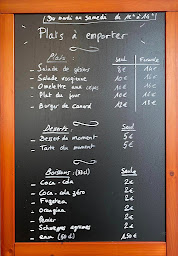 Du mardi au samedi de 12h à 14h
Plats à emporter
Plats : Seul Formule
- Salade de gésiers 8€ 14€
- Salade vosgienne 10€ 16€
- Omelette aux cèpes 10€ 16€
- Plat du jour 11€
- Burger de canard 12€ 18€
Desserts Seul
- Dessert du moment 5€
- Tarte du moment 5€
Boissons : (33cl) Seule
- Coca-cola 2€
- Coca-cola zéro 2€
- Fuzetea 2€
- Orangina 2€
- Perrier 2€
- Schweppes agrumes 2€
- eau (50cl) 1,50€